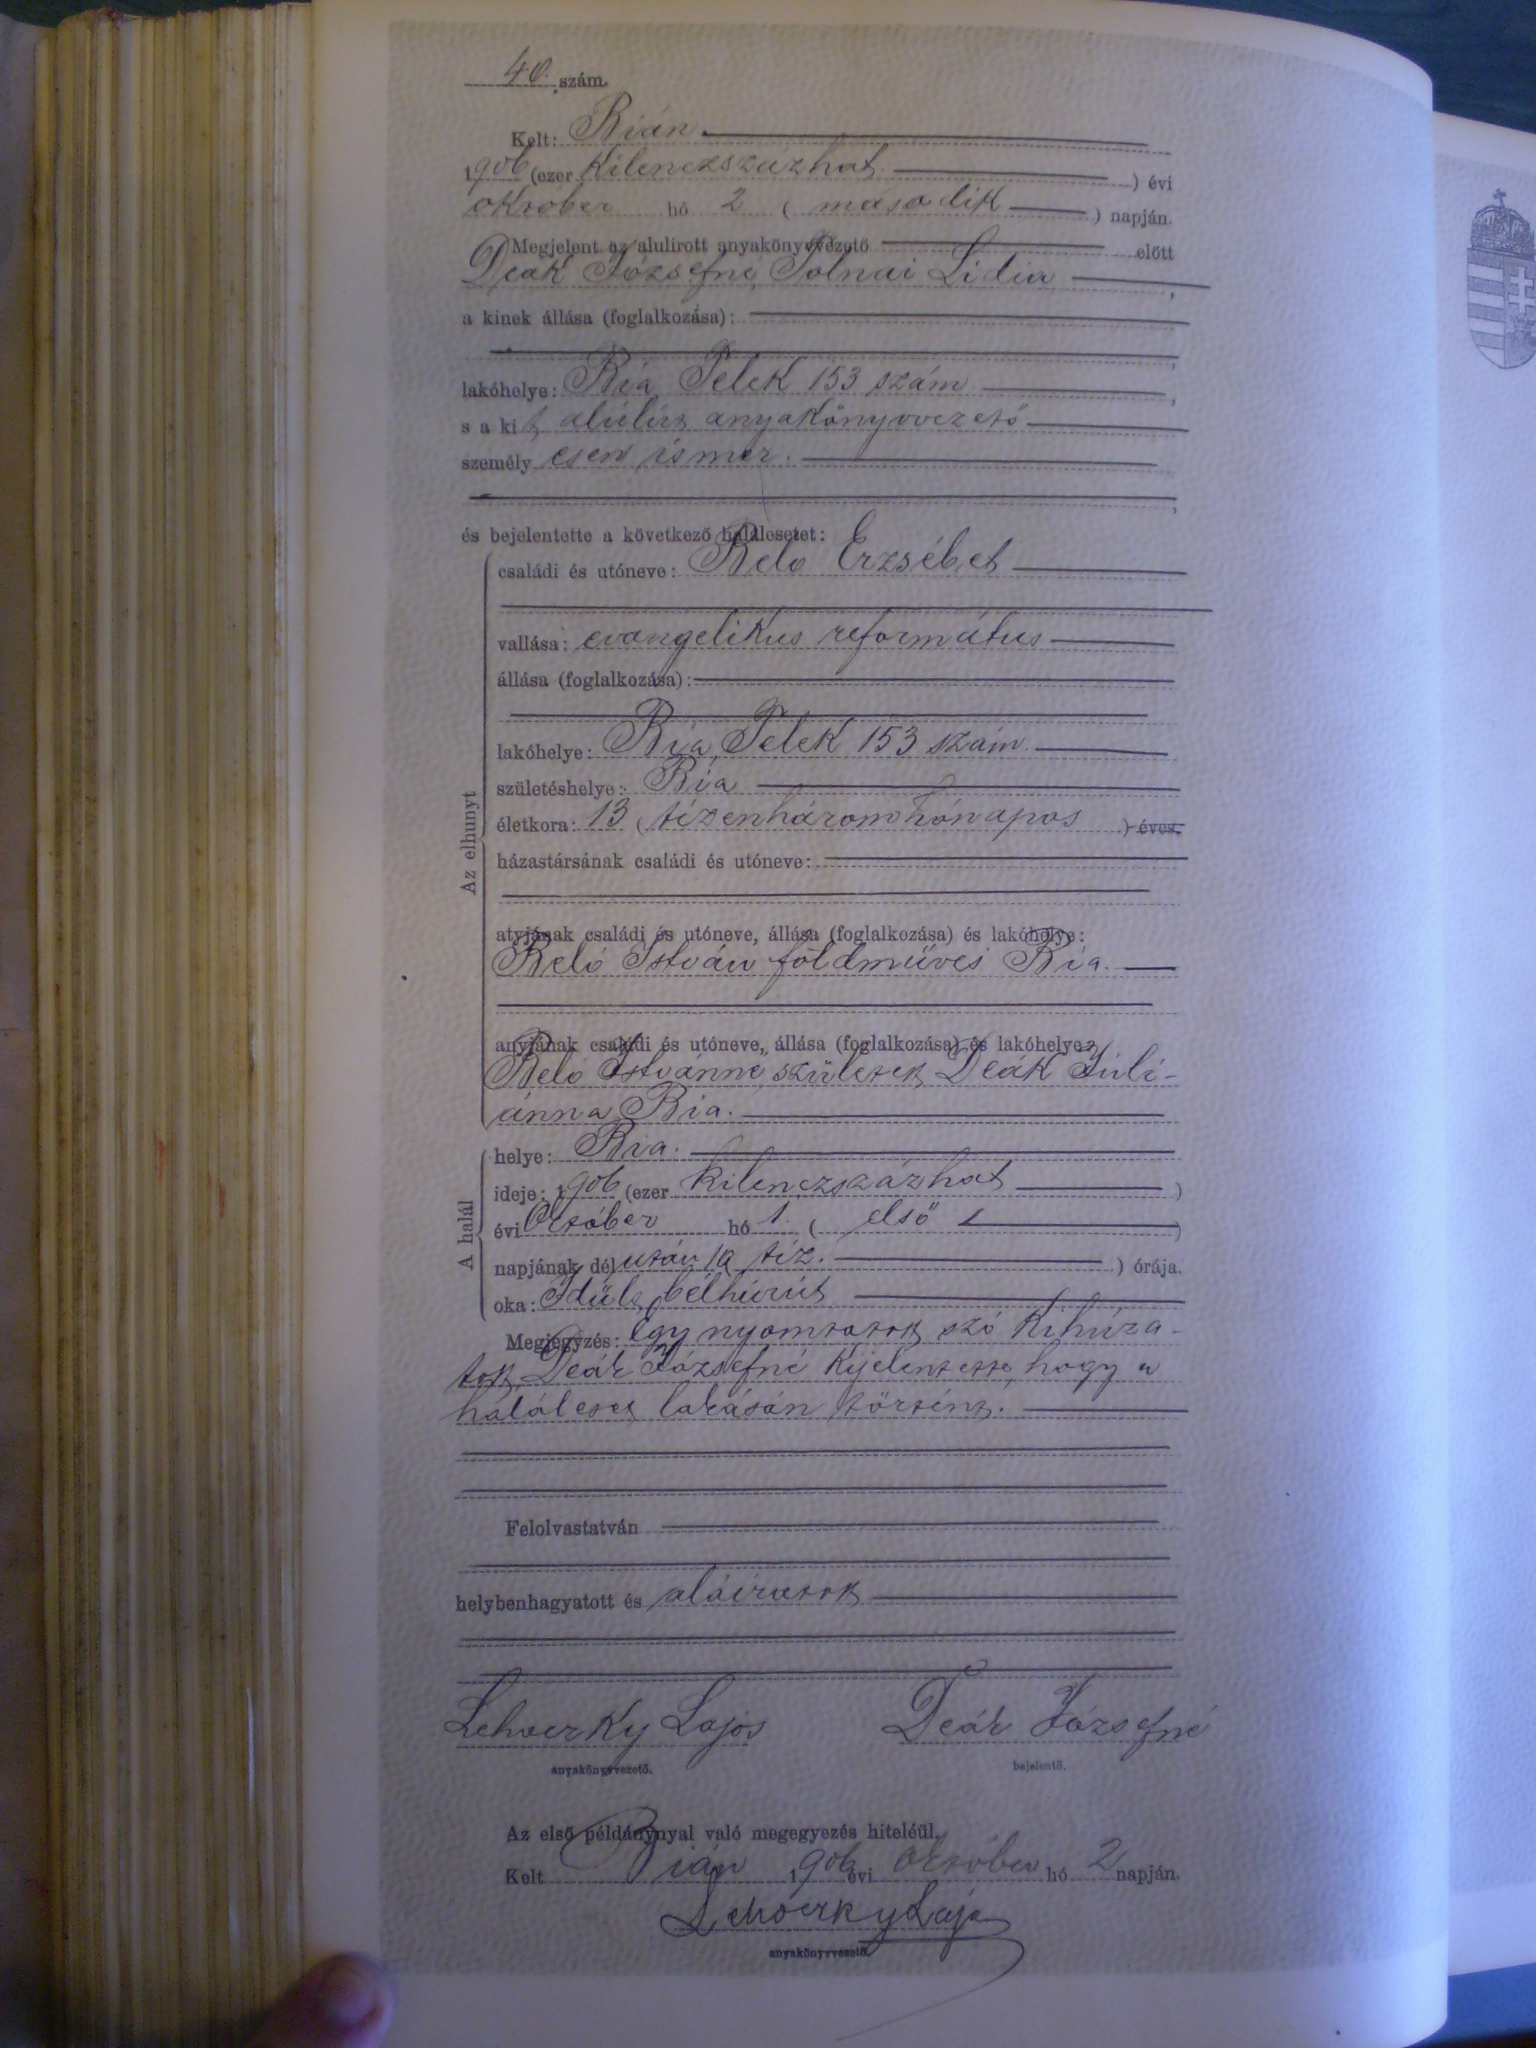 40. szám.
Kelt: Bián
1906 (ezer kilenczszázhat ) évi
október hó 2 ( második ) napján.
Megjelent az alulirott anyakönyvvezető előtt
Deák Józsefné, Tolnai Lidia ,
a kinek állása (foglalkozása):
;
lakóhelye: Bia, Telek 153 szám ,
s a kit alúlirt anyakönyvvezető
személy esen ismer.
;
és bejelentette a következő halálesetet:
Az elhunyt
családi és utóneve: Beló Erzsébet
vallása: evangelikus református
állása (foglalkozása):
lakóhelye: Bia, Telek 153 szám.
születéshelye: Bia
életkora: 13 ( tizenhárom hónapos ) éves.
házastársának családi és utóneve:
atyjának családi és utóneve, állása (foglalkozása) és lakóhelye:
Beló István földműves Bia.
anyjának családi és utóneve, állása (foglalkozása) és lakóhelye:
Beló Istvánné, született Deák Juli-
ánna, Bia.
A halál
helye: Bia.
ideje: 1906 (ezer kilenczszázhat )
évi Október hó 1. ( első )
napjának dél után 10 ( tiz. ) órája.
oka: Idült bélhúrút
Megjegyzés: Egy nyomtatott szó kihúza-
tott, Deák Józsefné kijelentette, hogy a
háláleset lakásán történt.
Felolvastatván
helybenhagyatott és aláiratott
Lehoczky Lajos Deák Józsefné
anyakönyvvezető. bejelentő.
Az első példánynyal való megegyezés hiteléül.
Kelt Bián 1906 évi Október hó 2 napján.
Lehoczky Lajos
anyakönyvvezető.